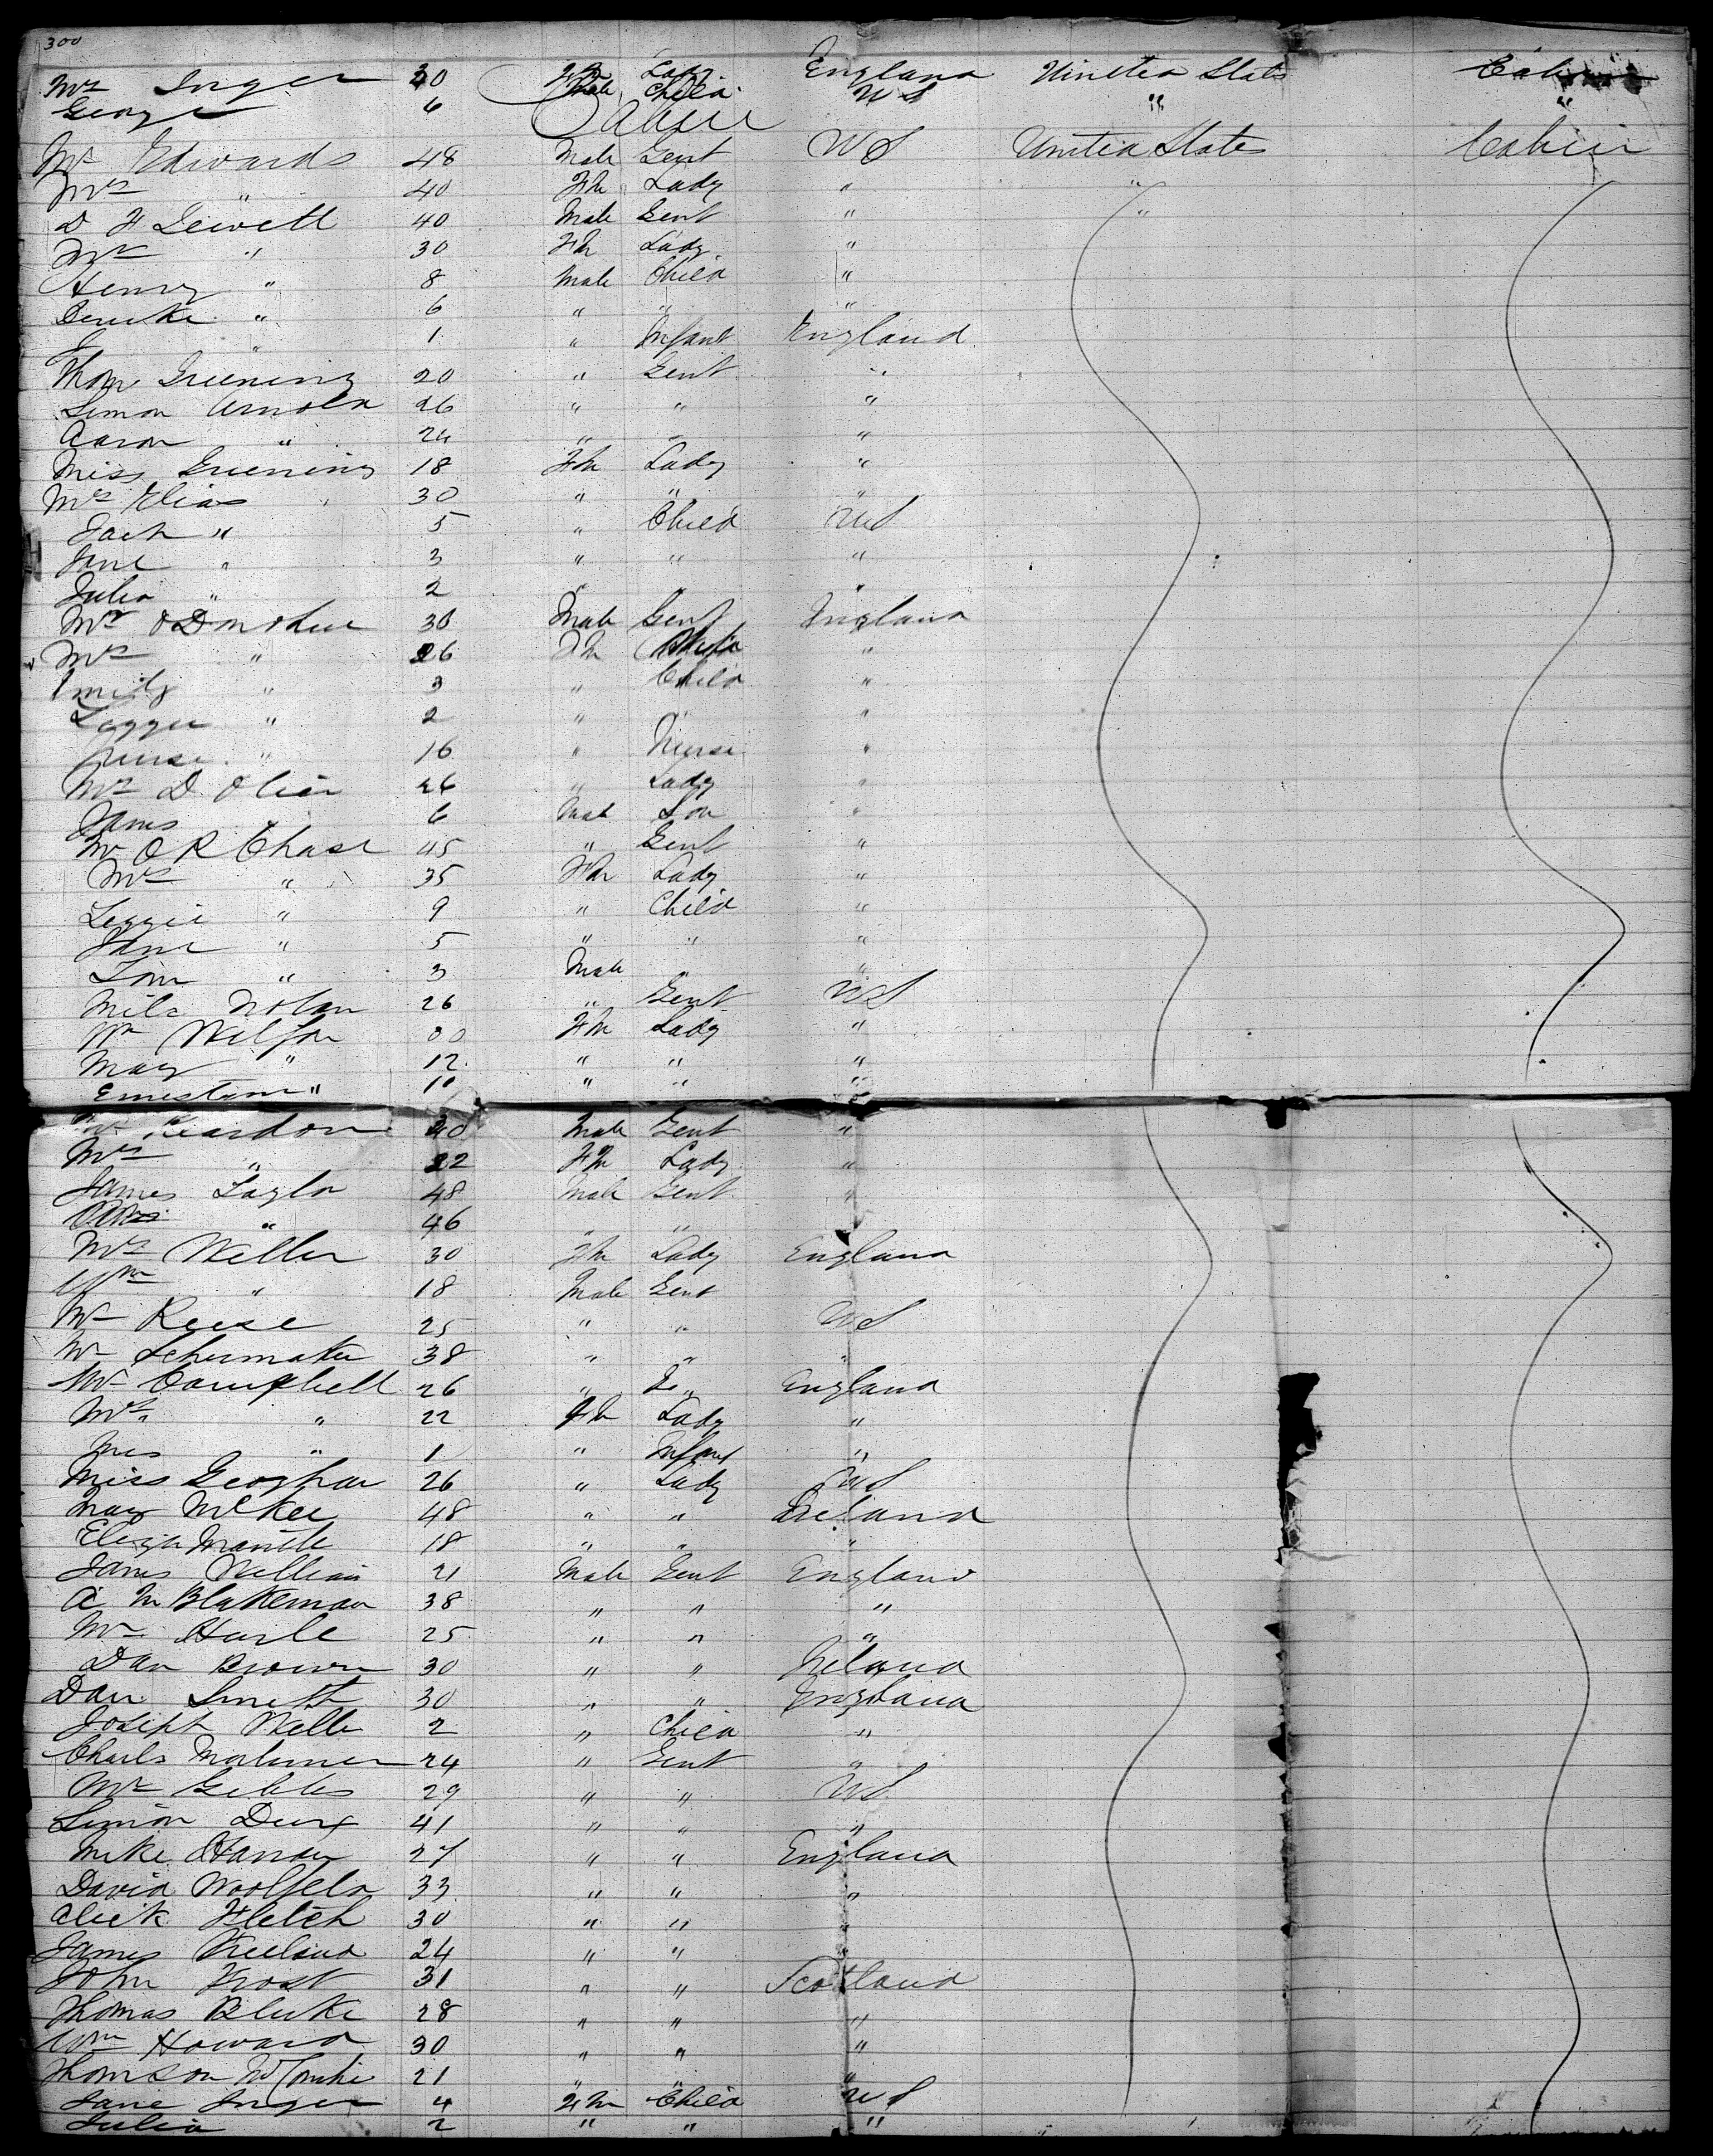 300
Mrs Inger 30 Fm Lady England United States Cabin
George 6 Male Child U S " "
Cabin
Mr Edwards 48 Male Gent U S United States Cabin
Mrs " 40 Fm Lady " "
D H Jewett 40 Male Gent " "
Mrs " 30 Fm Lady "
Henry " 8 Male Child "
" 6 " " "
J " 1 " Infant England
Thom Greening 20 " Gent "
Simon Arnold 26 " " "
Aaron " 24 " " "
Miss Greening 18 Fm Lady "
Mrs Elias 30 " " "
Jack " 5 " Child U S
Jane " 3 " " "
Julia " 2 " " "
Mr O'Donohue 30 Male Gent England
Mrs " 26 Fm "
Emily " 3 " Child "
" 2 " " "
Nurse " 16 " Nurse "
Mrs D. 26 " Lady "
James 6 Male Son "
Mr O R Chase 45 " Gent "
Mrs " 35 Fm Lady "
Lizzie " 9 " Child "
Jane " 5 " " "
Tom " 3 Male " "
Mile Nolan 26 " Gent U S
Wilson Fm Lady "
May " 12 " " "
Ernestine " 10 " " "
Mr Reardon 40 Male Gent "
Mrs " 22 Fm Lady "
James Taylor 48 Male Gent "
" 46 " "
Mrs Weller 30 Fm Lady England
Wm " 18 Male Gent
Mr Reese 25 " " U S
Mr Schumaker 38 " " "
Mr Campbell 26 " " England
Mrs " 22 Fm Lady "
" 1 " Infant "
Miss Geoghan 26 " Lady U S
Mary McKee 48 " " Ireland
Eliza Mantle 18 " " "
James William 21 Male Gent England
A M Blakeman 38 " " "
Mr Harle 25 " " "
Dan Brown 30 " " Ireland
Dan Smith 30 " " England
Joseph Welle 2 " Child "
Charls Mortimer 24 " Gent "
Mr Gibbs 29 " " U S
Simon 41 " " "
Mike 27 " " England
David Woolfeld 33 " " "
Alick Fletch 30 " " "
James Freeland 24 " " "
John Frost 31 " " Scotland
Thomas Bluke 28 " " "
Wm Howard 30 " " "
Thomson 21 " " "
Jane Inger 4 Fm Child U S
Julia 2 " " "